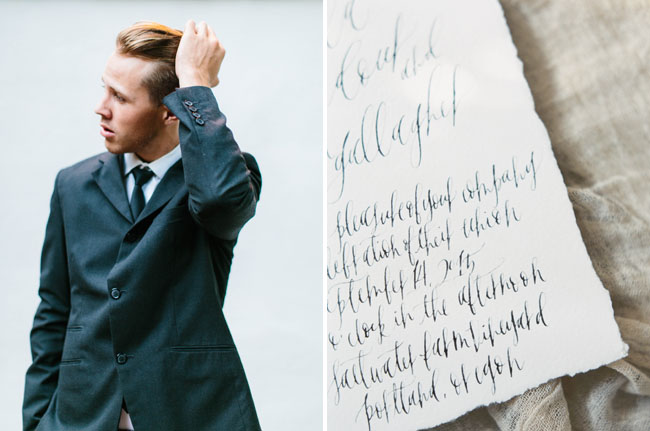 and
gallagher
pleasure of your company
of their union
september 14, 2015
o'clock in the afternoon
saltwater farm vineyard
portland, oregon